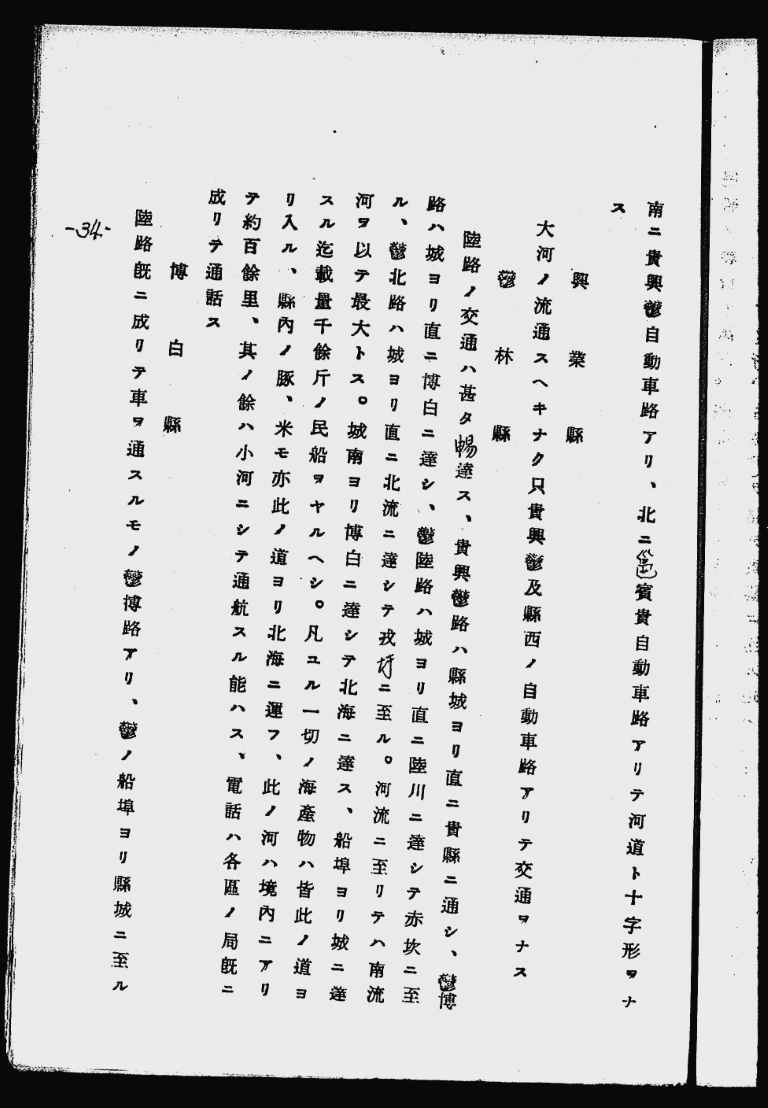 南ニ貴興鬱自動車路アリ、北ニ邕賓貴自動車路アリテ河道ト十字形ヲナ
ス
興業縣
大河ノ流通スヘキナク只貴興鬱及縣西ノ自動車路アリテ交通ヲナス
鬱林縣
陸路ノ交通ハ甚タ暢達ス、貴興鬱路ハ縣城ヨリ直ニ貴縣ニ通シ、鬱博
路ハ城ヨリ直ニ博白ニ達シ、鬱陸路ハ城ヨリ直ニ陸川ニ達シテ赤坎ニ至
ル、鬱北路ハ城ヨリ直ニ北流ニ達シテ戎圩ニ至ル。河流ニ至リテハ南流
河ヲ以テ最大トス。城南ヨリ博白ニ達シテ北海ニ達ス、船埠ヨリ城ニ達
スル迄載量千餘斤ノ民船ヲヤルヘシ。凡ユル一切ノ海產物ハ皆此ノ道ヨ
リ入ル、縣內ノ豚、米モ亦此ノ道ヨリ北海ニ運フ、此ノ河ハ境內ニアリ
テ約百餘里、其ノ餘ハ小河ニシテ通航スル能ハス、電話ハ各區ノ局旣ニ
成リテ通話ス
博白縣
陸路旣ニ成リテ車ヲ通スルモノ鬱博路アリ、鬱ノ船埠ヨリ縣城ニ至ル
-34-